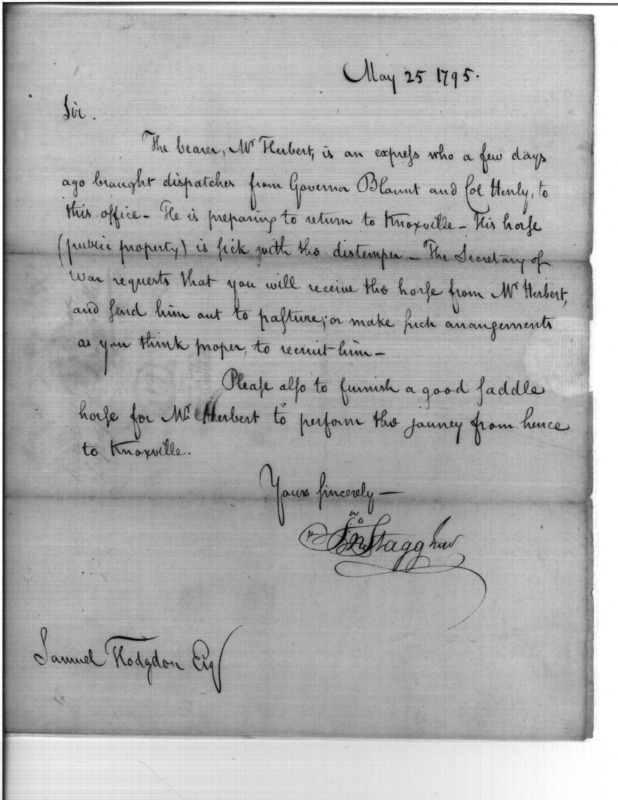 May 25 1795.
Sir.
The bearer, Mr Herbert, is an express who a few days
ago braught dispatches from Governor Blount and Col Henly, to
this office - He is preparing to return to Knoxville - His horse
(public property) is sick with the distemper - The Secretary of
War requests that you will receive the horse from Mr Herbert,
and send him out to pasture; or make such arrangements
as you think proper, to recruit him -
Please also to furnish a good saddle
horse for Mr Herbert to perform the jauney from hence
to Knoxville.
Yours sincerely -
Jno Stagg Junr
Samuel Hodgdon Esq